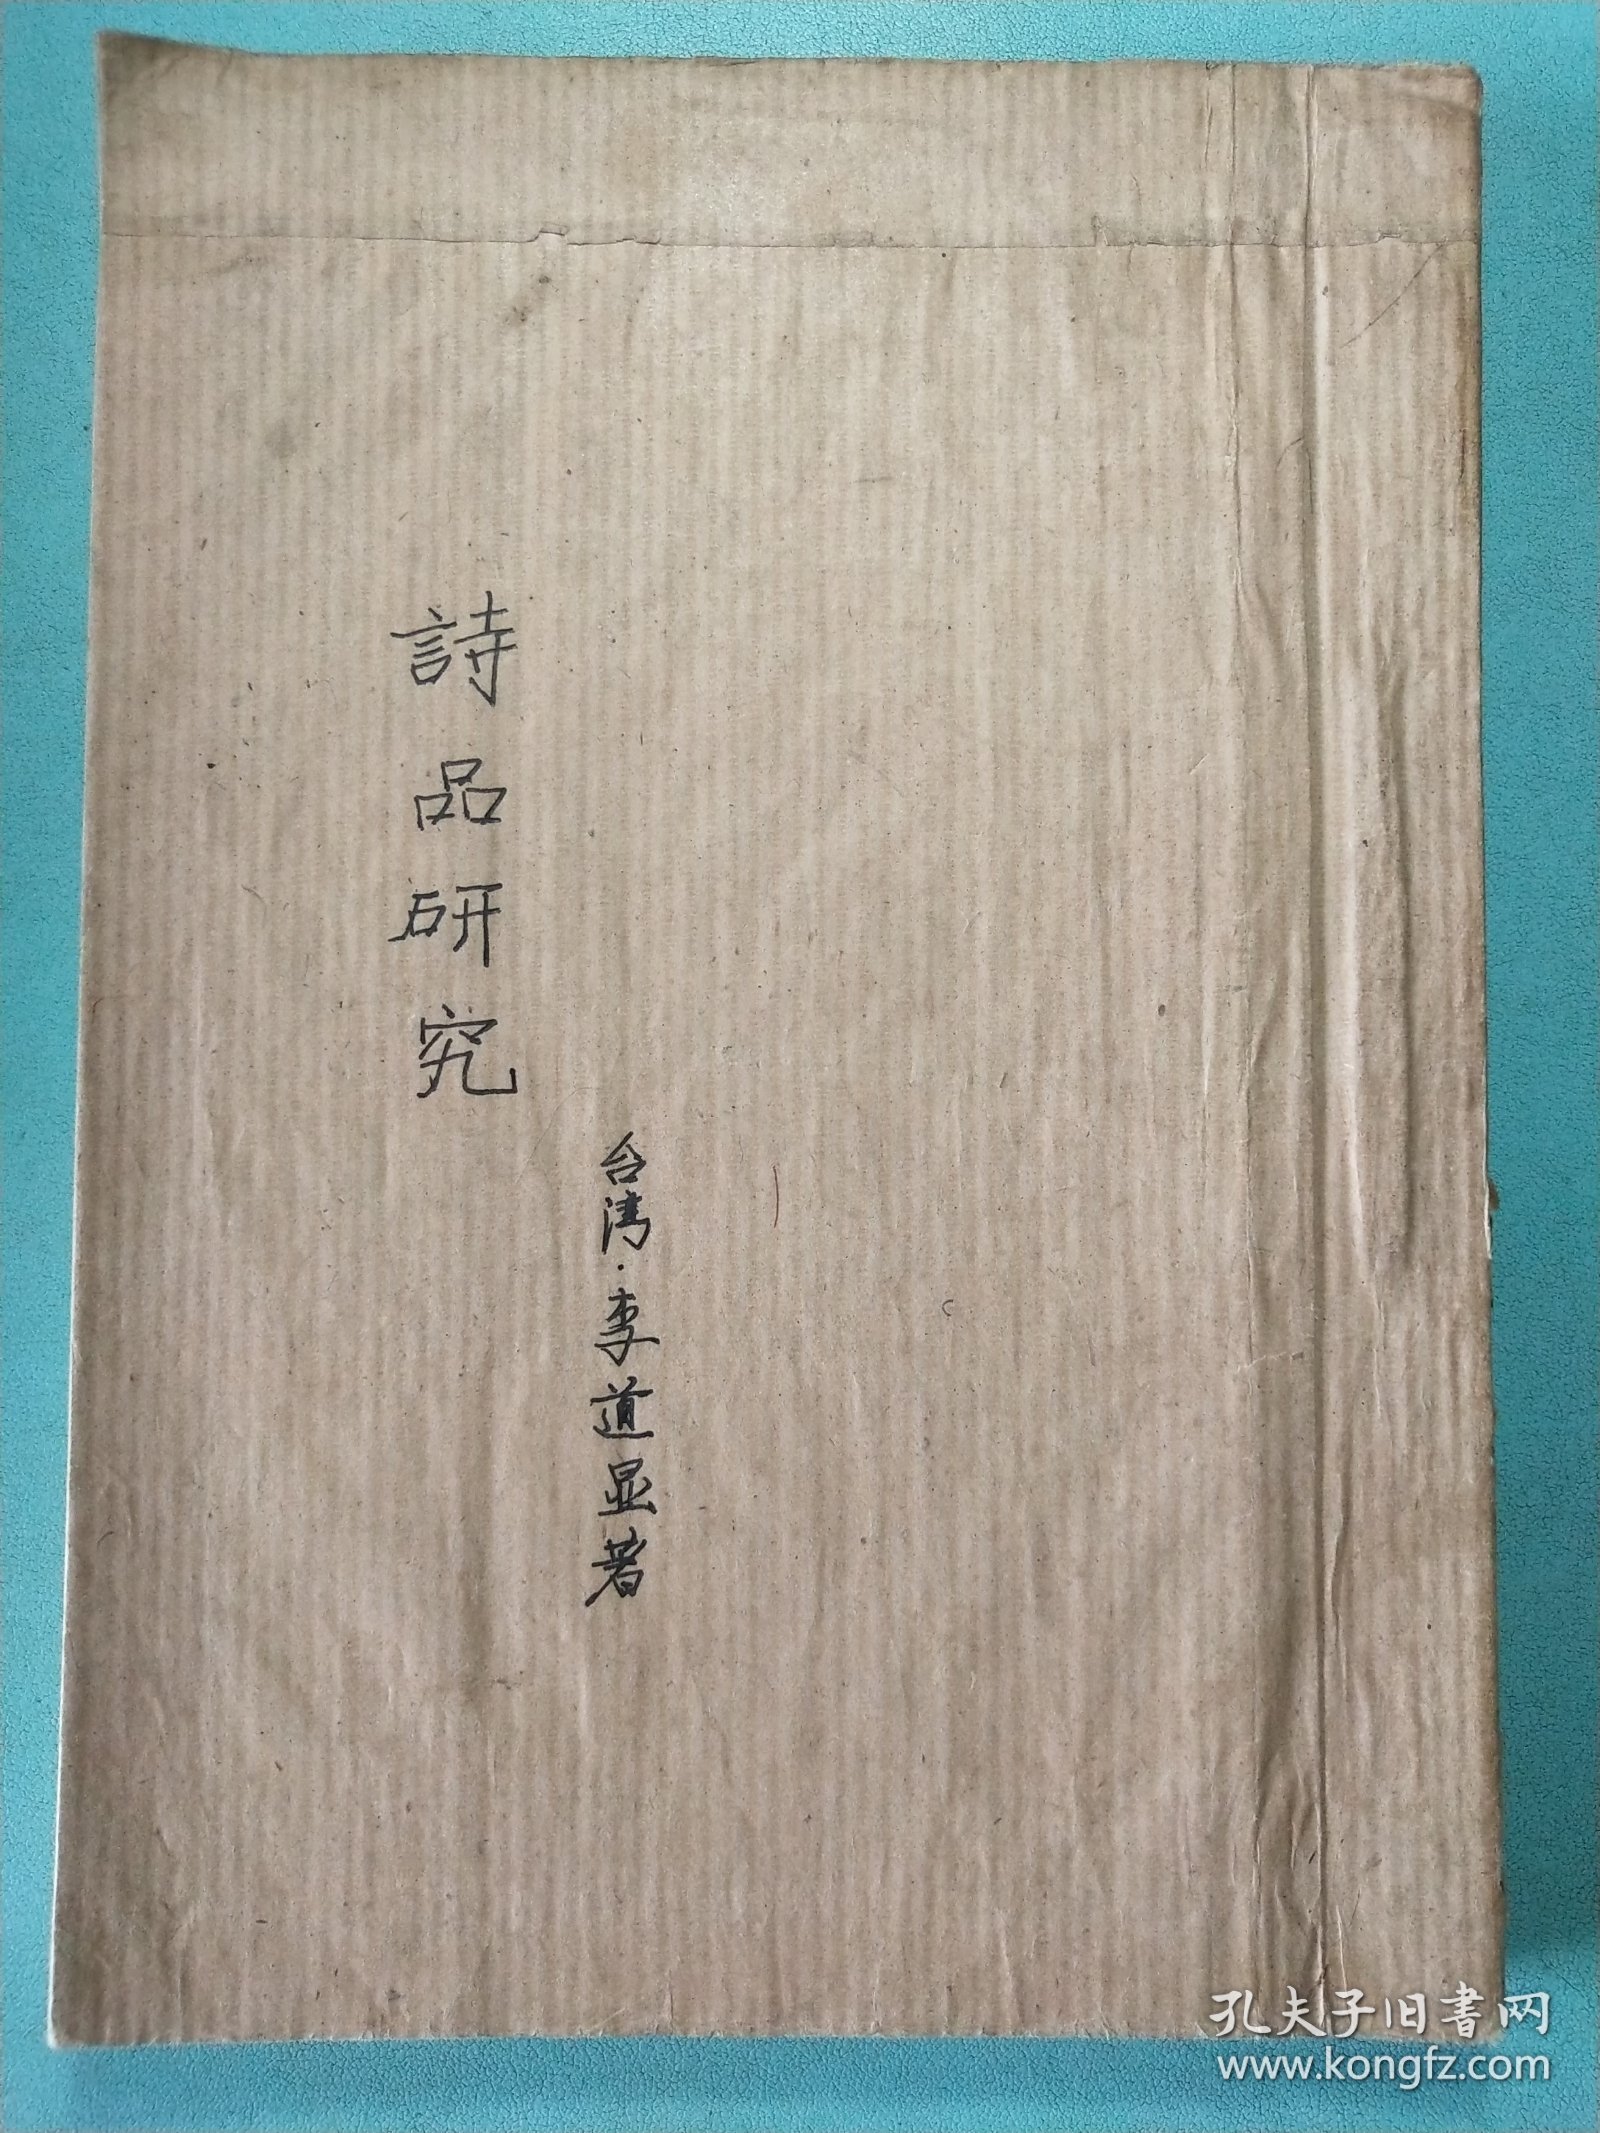 詩品研究
台湾·李道显著
孔夫子旧書网
www.kongfz.com